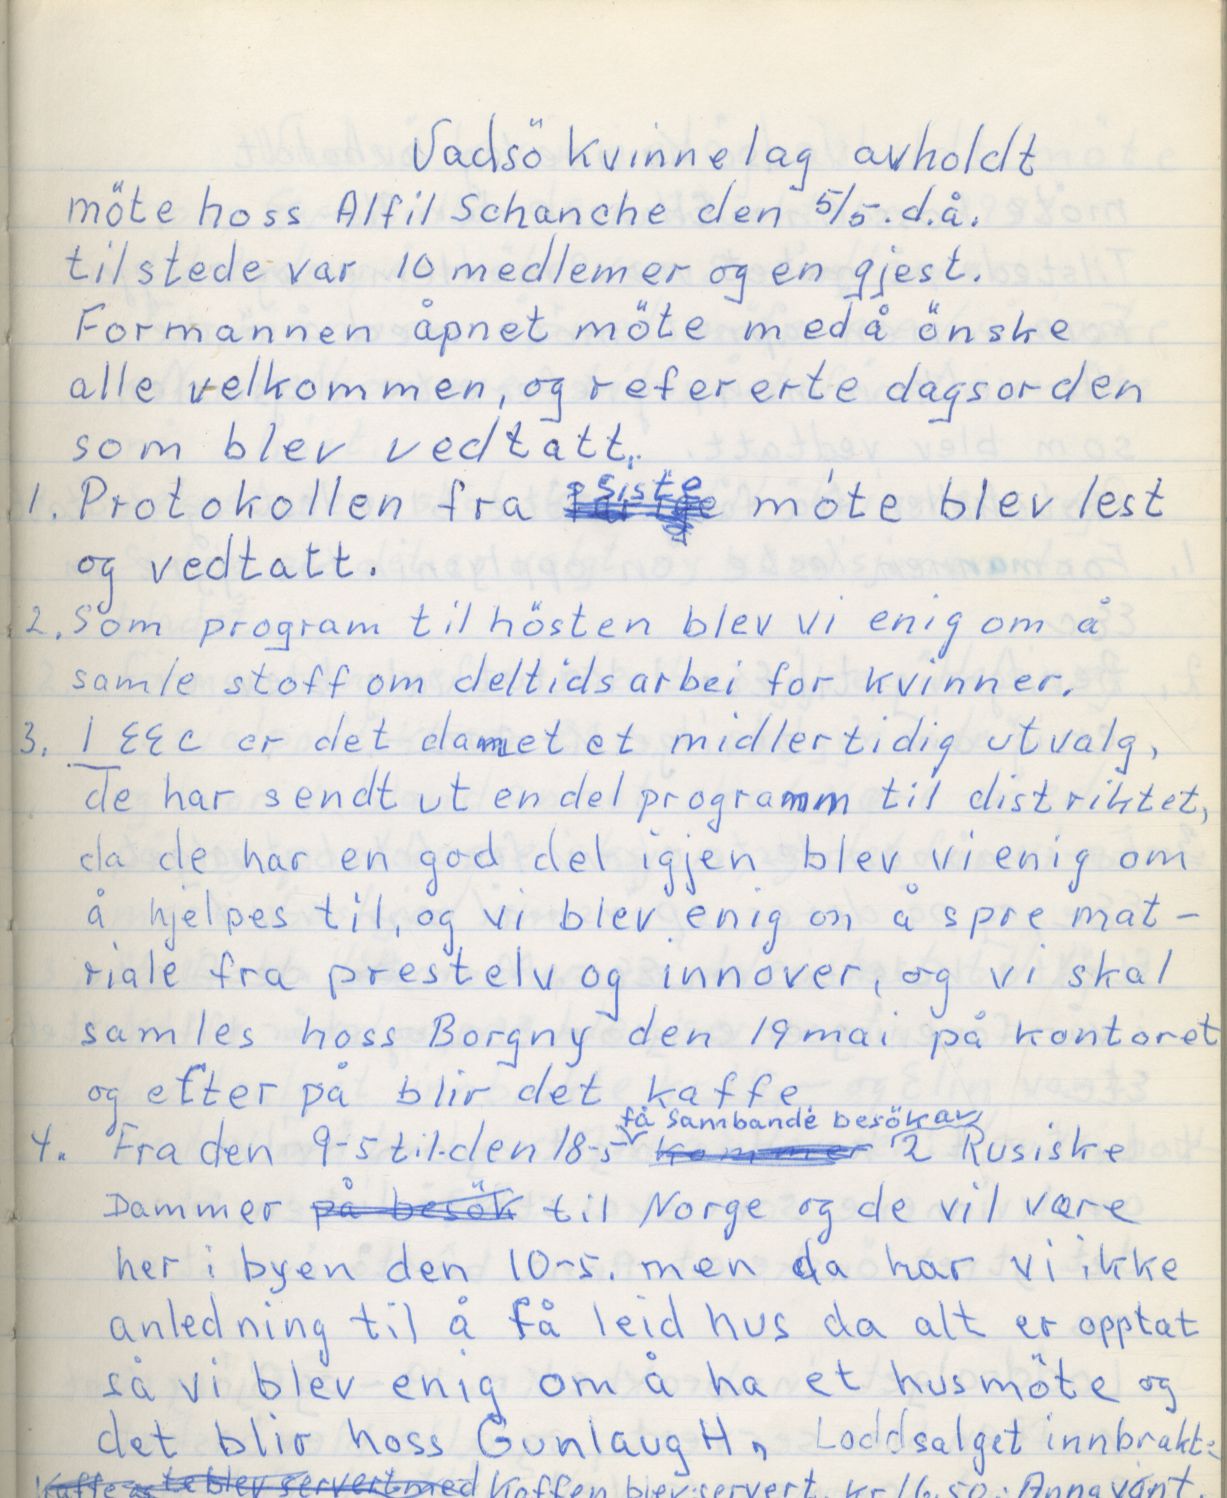 Vadsö kvinnelag avholdt
möte hoss Alfil Schanche den 5/5. d.å.
tilstede var 10 medlemer og en gjest.
Formannen åpnet möte med å önske
alle velkommen, og refererte dagsorden
som blev vedtatt.
1. Protokollen fra siste möte blev lest
og vedtatt.
2. Som program til hösten blev vi enig om å
samle stoff om deltidsarbei for kvinner.
3. I EEC er det damet et midlertidig utvalg,
de har sendt ut en del programm til distriktet,
da de har en god del igjen blev vi enig om
å hjelpes til, og vi blev enig om å spre mat-
riale fra prestelv og innover, og vi skal
samles hoss Borgny den 19 mai på kontoret
og efter på blir det kaffe
få Sambandé besök av
4. Fra den 9-5 til den 18-5 kommer 2 Rusiske
Dammer på besök til Norge og de vil være
her i byen den 10-5. men da har vi ikke
anledning til å få leid hus da alt er opptat
så vi blev enig om å ha et husmöte og
det blir hoss Gunlaug H. Loddsalget innbrakte
Kaffe blev servert med Kaffen blev servert. kr 16.50. Anna vant.